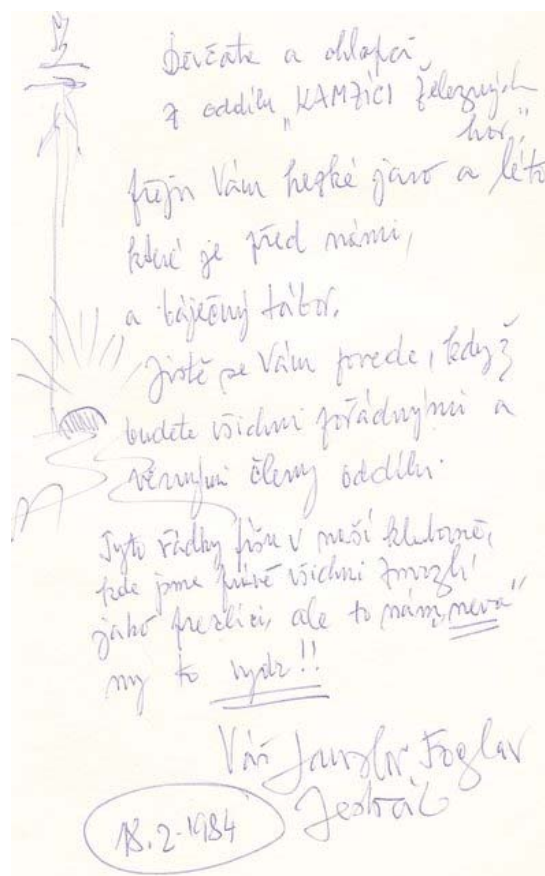 Děvčata a chlapci,
z oddílu „KAMZÍCI Železných
hor"
přeji Vám hezké jaro a léto
které je před námi,
a báječný tábor.
Jistě se Vám povede, když
budete všichni pořádnými a
věrnými členy oddílu.
Tyto řádky píšu v naší klubovně,
kde jsme právě všichni zmrzlí
jako preclíci, ale to nám „nevá"
my to vydr!!
Váš Jaroslav Foglar
Jestřáb
18.2.1984